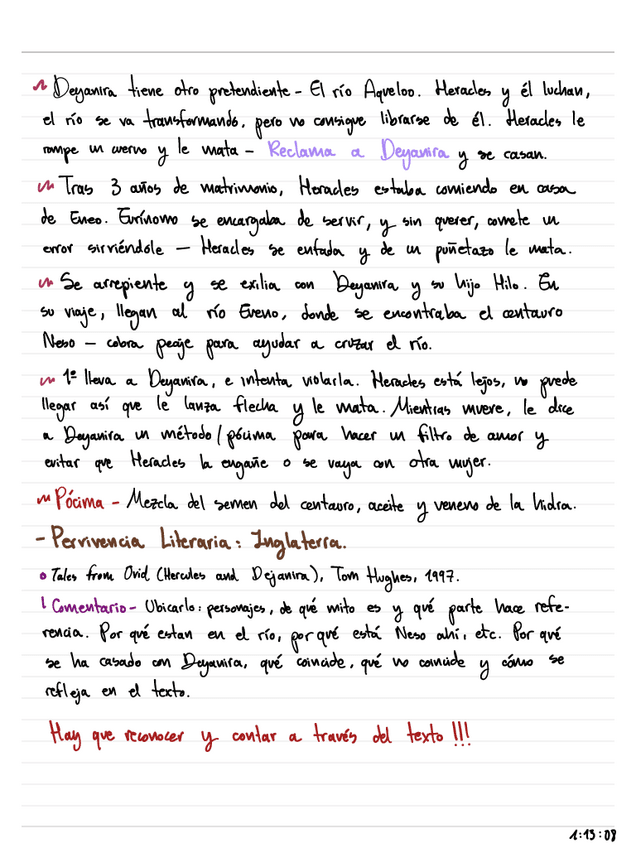 Deyanira tiene otro pretendiente - El río Aqueloo. Heracles y él luchan,
el río se va transformando, pero no consigue librarse de él. Heracles le
rompe un cuerno y le mata - Reclama a Deyanira y se casan.
Tras 3 años de matrimonio, Heracles estaba comiendo en casa
de Eneo. Eurínomo se encargaba de servir, y sin querer, comete un
error sirviéndole — Heracles se enfada y de un puñetazo le mata.
Se arrepiente y se exilia con Deyanira y su hijo Hilo. En
su viaje, llegan al río Eveno, donde se encontraba el centauro
Neso — cobra peaje para ayudar a cruzar el río.
1º lleva a Deyanira, e intenta violarla. Heracles está lejos, no puede
llegar así que le lanza flecha y le mata. Mientras muere, le dice
a Deyanira un método / pócima para hacer un filtro de amor y
evitar que Heracles la engañe o se vaya con otra mujer.
Pócima - Mezcla del semen del centauro, aceite y veneno de la hidra.
- Pervivencia Literaria: Inglaterra.
Tales from Ovid (Hercules and Dejanira), Tom Hughes, 1997.
Comentario - Ubicarlo: personajes, de qué mito es y qué parte hace refe-
rencia. Por qué estan en el río, por qué está Neso ahí, etc. Por qué
se ha casado con Deyanira, qué coincide, qué no coincide y cómo se
refleja en el texto.
Hay que reconocer y contar a través del texto !!!
1:13:08